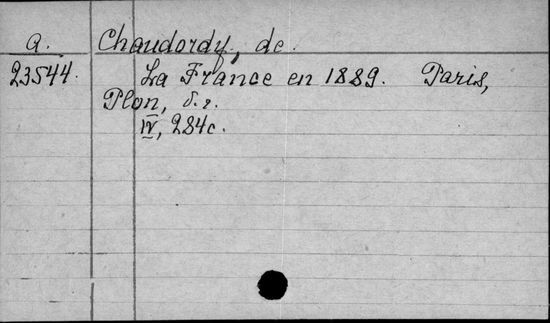 a. Chaudordy, de.
23544. La France en 1889. Paris,
Plon, б. г.
IV, 284с.